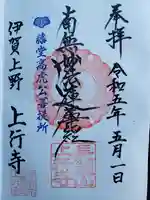 奉拝
令和五年五月一日
南無妙法蓮華経
藤堂高虎公菩提所
伊賀上野
上行寺